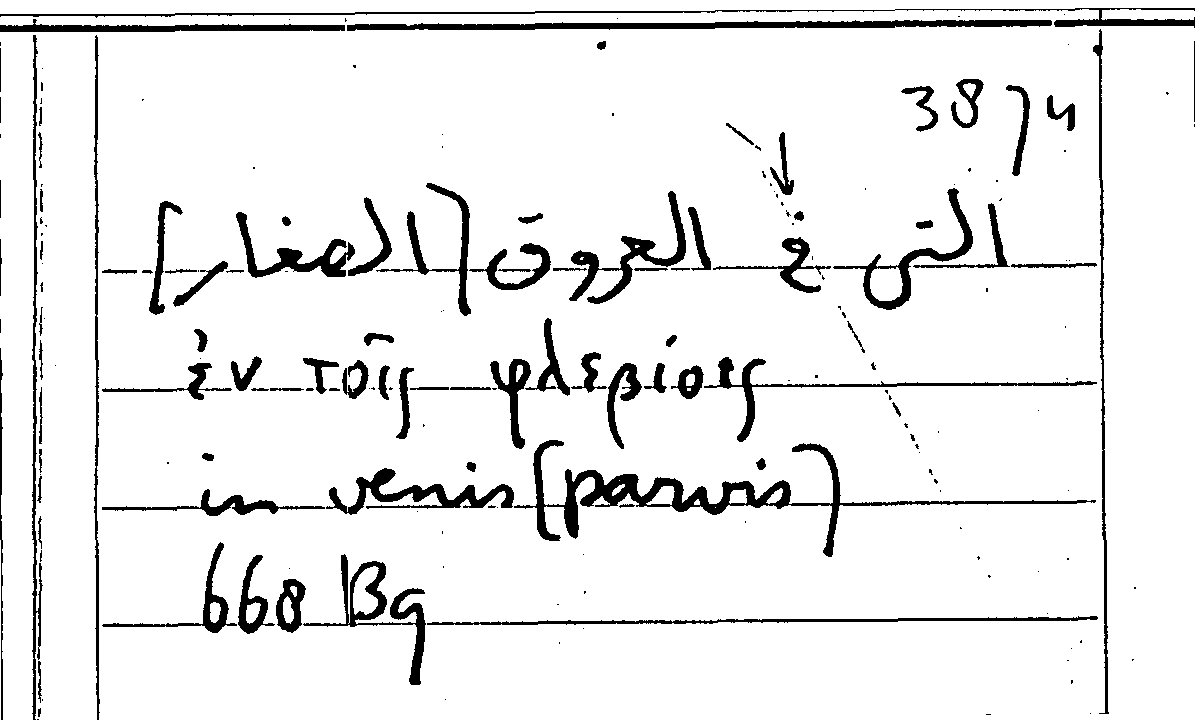 3874
التى فى العروق [الصغار]
ἐν τοῖς φλεβίοις
in venis [parvis]
668 B9